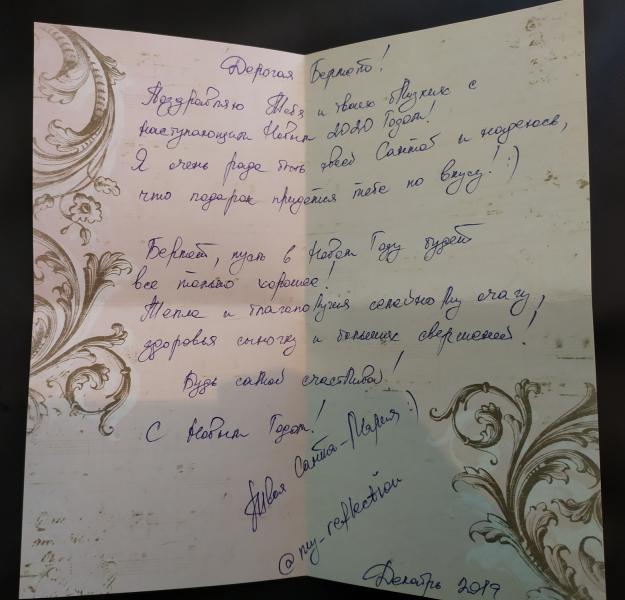 Дорогая Бермет!
Поздравляю Тебя и твоих близких с
наступающим Новым 2020 Годом!
Я очень рада быть твоей Сантой и надеюсь,
что подарок придётся тебе по вкусу! :)
Бермет, пусть в Новом Году будет
все только хорошее!
Тепла и благополучия семейному очагу,
здоровья сыночку и больших свершений!
Будь самой счастливой!
С Новым Годом!
Твоя Санта-Мария :)
@my_reflection
Декабрь 2019